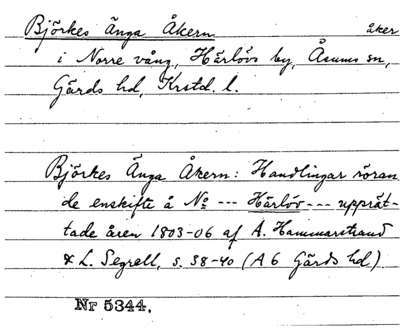 Björkes Änga Åkern åker
i Norre vång, Härlövs by, Åsums sn,
Gärds hd, Krstd. l.
Björkes Änga Åkern: Handlingar röran-
de enskifte å No --- Härlöv --- upprät-
tade åren 1803-06 af A. Hammarstrand
& L. Segrell, s. 38-40 (A 6 Gärds hd).
Nr 5344.